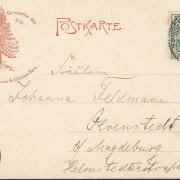 POSTKARTE
Fräulein
Johanna Feldmann
Olvenstedt
b/ Magdeburg
Helmstedterstraße